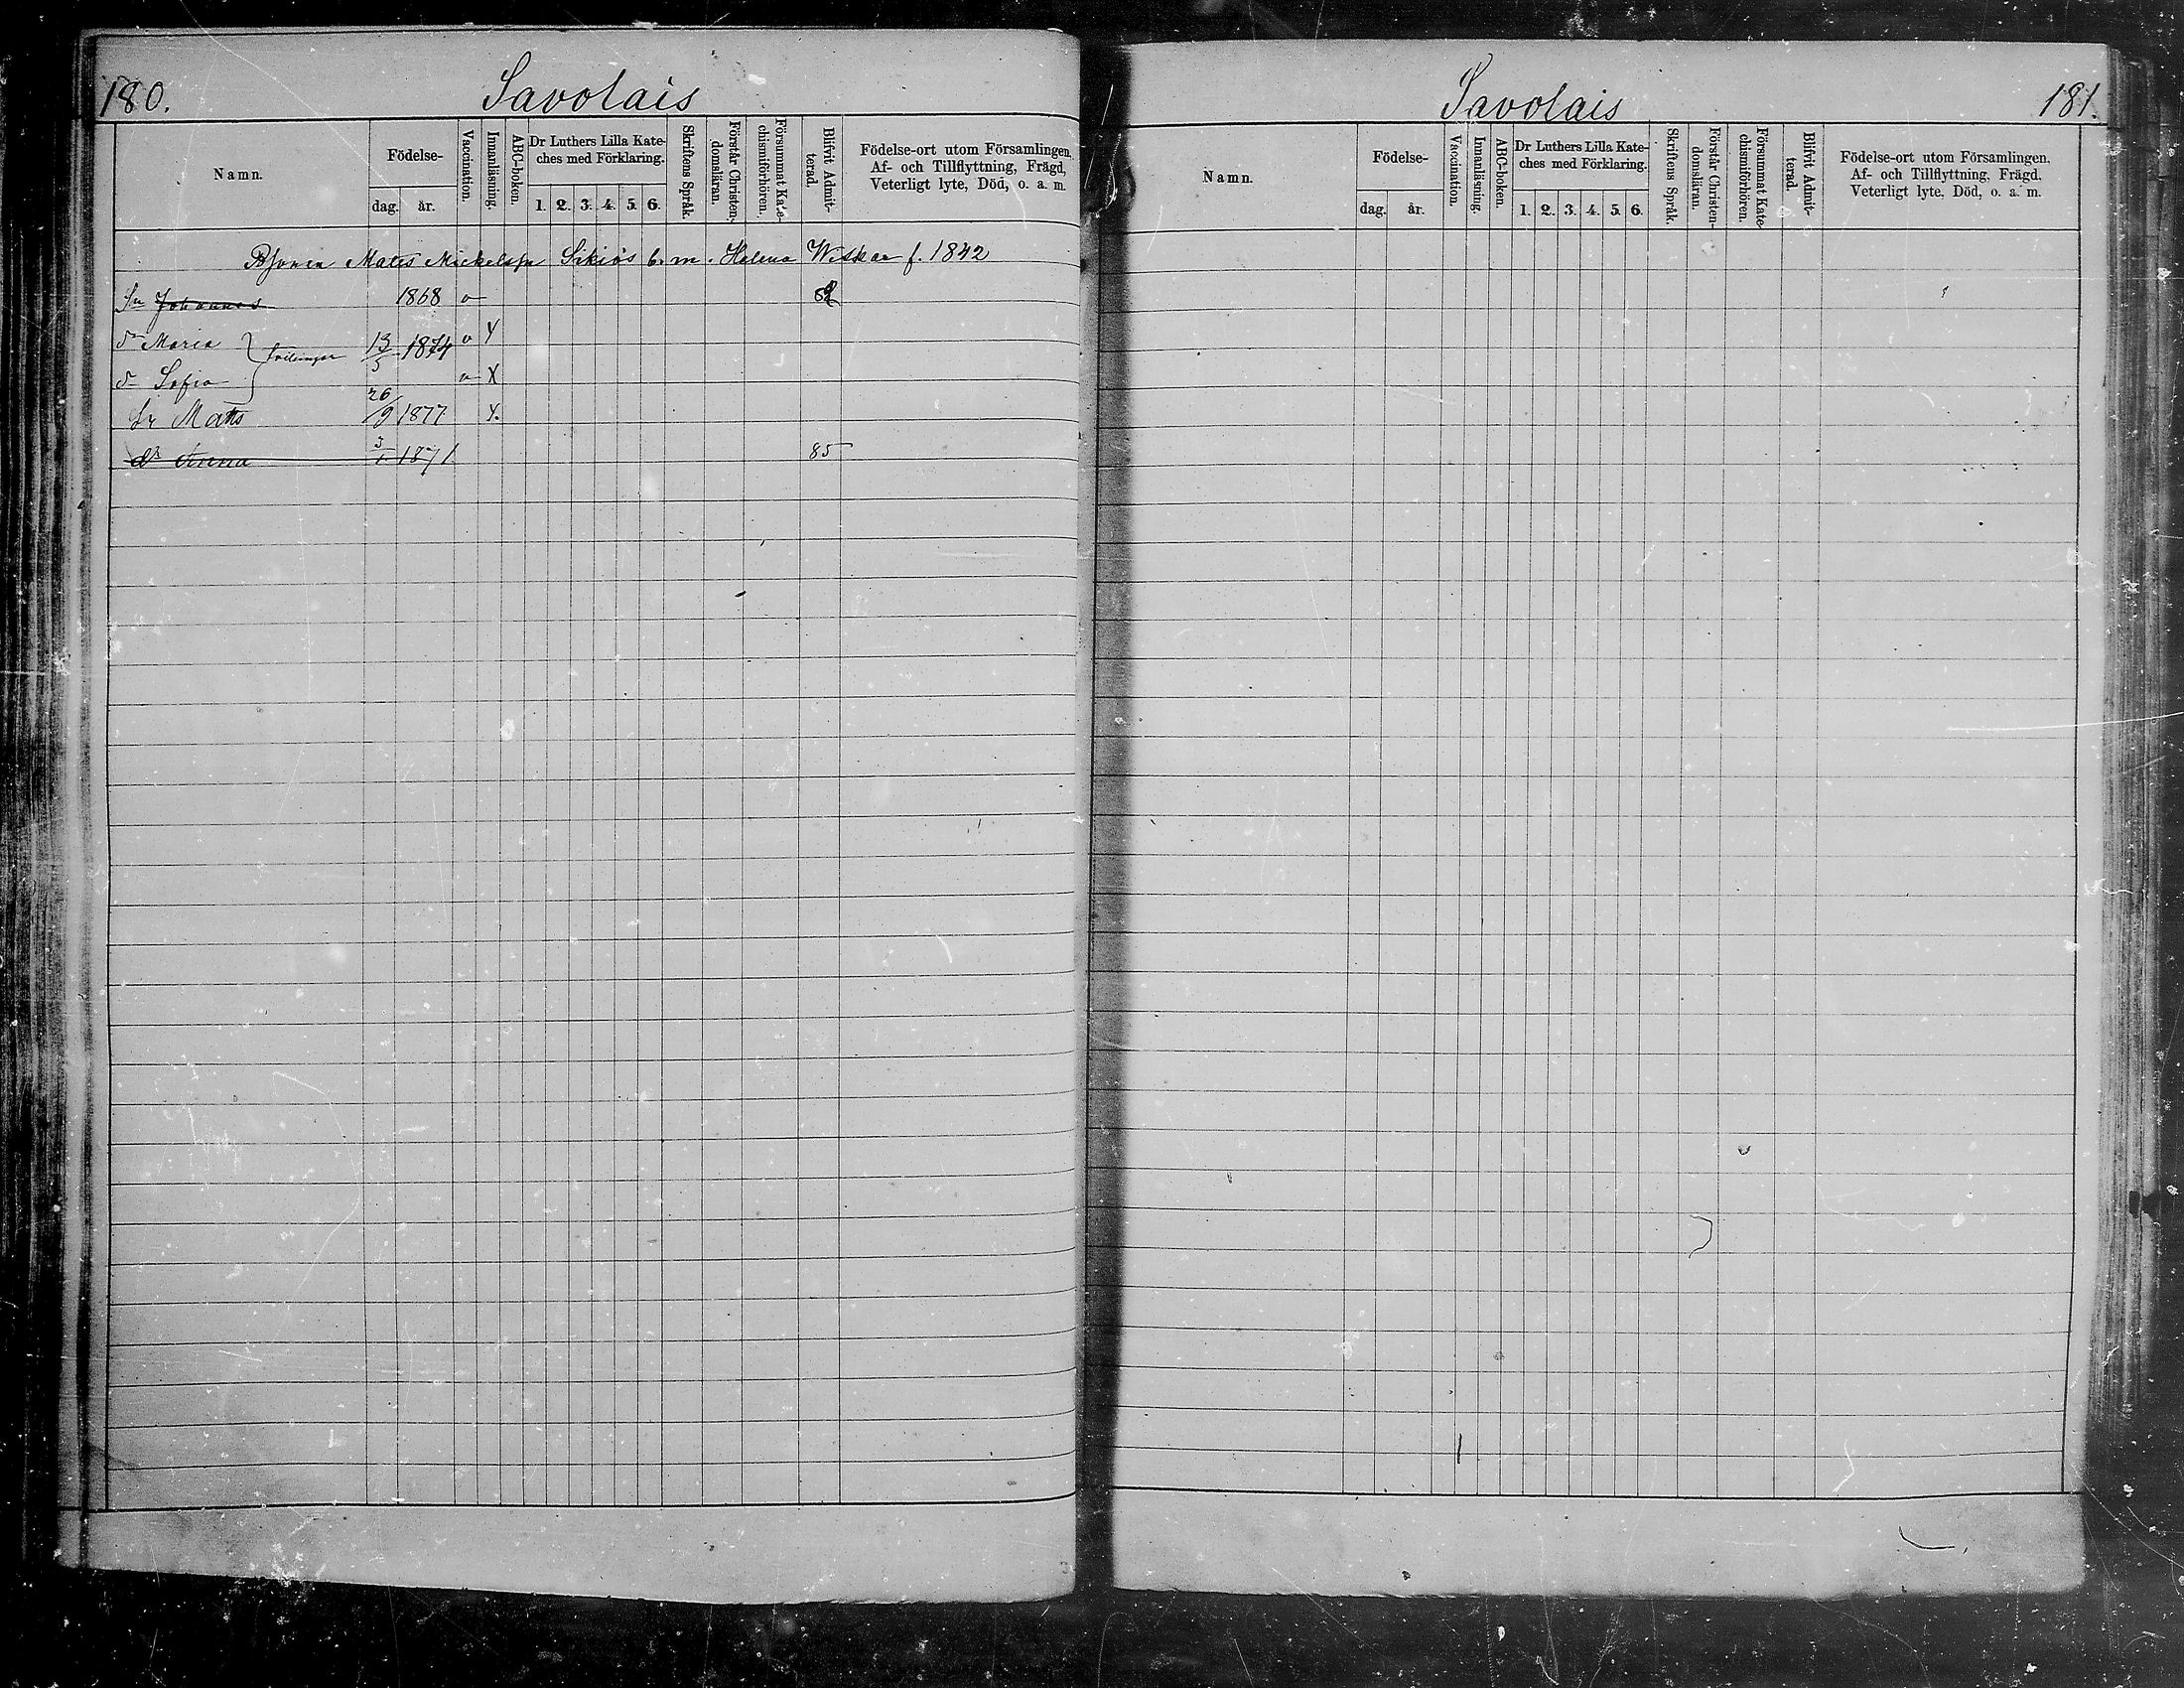 180.
Savolais
Namn.
Födelse-
dag.
år.
Vaccination.
Innanläsning.
ABC-boken.
Dr Luthers Lilla Kate-
ches med Förklaring.
1. 2. 3. 4. 5. 6.
Skriftens Språk.
Förstår Christen-
domsläran.
Försummat Kate-
chismiförhören.
Blifvit Admit-
terad.
Födelse-ort utom Församlingen,
Af- och Tillflyttning, Frägd,
Veterligt lyte, Död, o. a. m.
Mats Mickelsson b. m. Helena f. 1842
Sn Johannes 1868 v
dr Maria tvillingar 13/5 1874 v Y
dr Sofia v X
Sn Matts 26/9 1877 Y.
dr Anna 1871 85
Savolais
181.
Namn.
Födelse-
dag.
år.
Vaccination.
Innanläsning.
ABC-boken.
Dr Luthers Lilla Kate-
ches med Förklaring.
1. 2. 3. 4. 5. 6.
Skriftens Språk.
Förstår Christen-
domsläran.
Försummat Kate-
chismiförhören.
Blifvit Admit-
terad.
Födelse-ort utom Församlingen,
Af- och Tillflyttning, Frägd,
Veterligt lyte, Död, o. a. m.